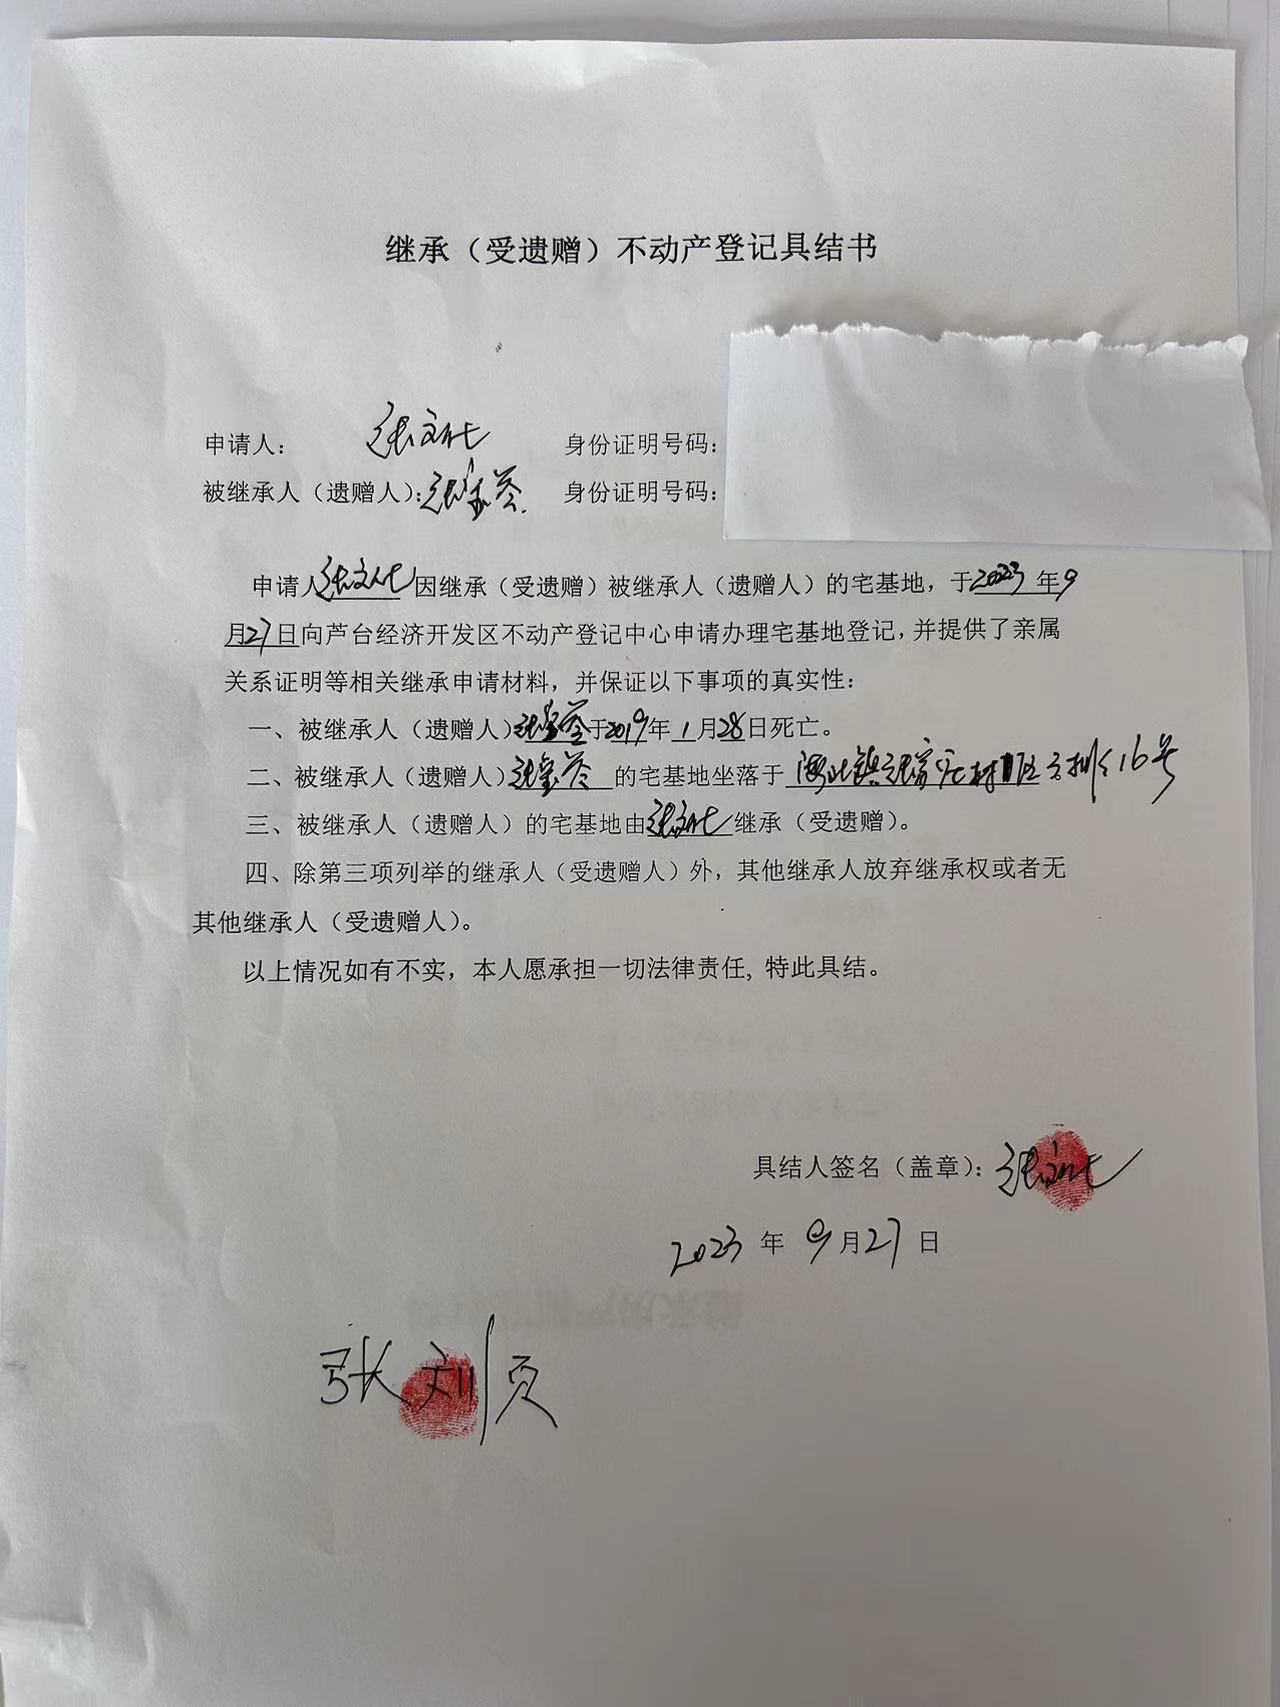 继承（受遗赠）不动产登记具结书
申请人： 张文化 身份证明号码：
被继承人（遗赠人）：张宝 身份证明号码：
申请人张文化因继承（受遗赠）被继承人（遗赠人）的宅基地，于2023年9
月27日向芦台经济开发区不动产登记中心申请办理宅基地登记，并提供了亲属
关系证明等相关继承申请材料，并保证以下事项的真实性：
一、被继承人（遗赠人）张宝于2019年1月28日死亡。
二、被继承人（遗赠人）张宝的宅基地坐落于海北镇张家庄村区排16号
三、被继承人（遗赠人）的宅基地由张文化继承（受遗赠）。
四、除第三项列举的继承人（受遗赠人）外，其他继承人放弃继承权或者无
其他继承人（受遗赠人）。
以上情况如有不实，本人愿承担一切法律责任，特此具结。
具结人签名（盖章）：张文化
2023年9月27日
张刘页